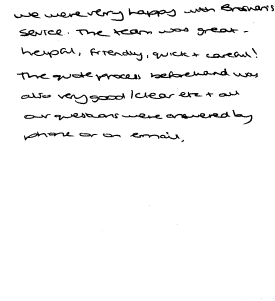 We were very happy with Brosnan's
service. The team was great -
helpful, friendly, quick + careful!
The quote process beforehand was
also very good / clear etc + all
our questions were answered by
phone or on email.